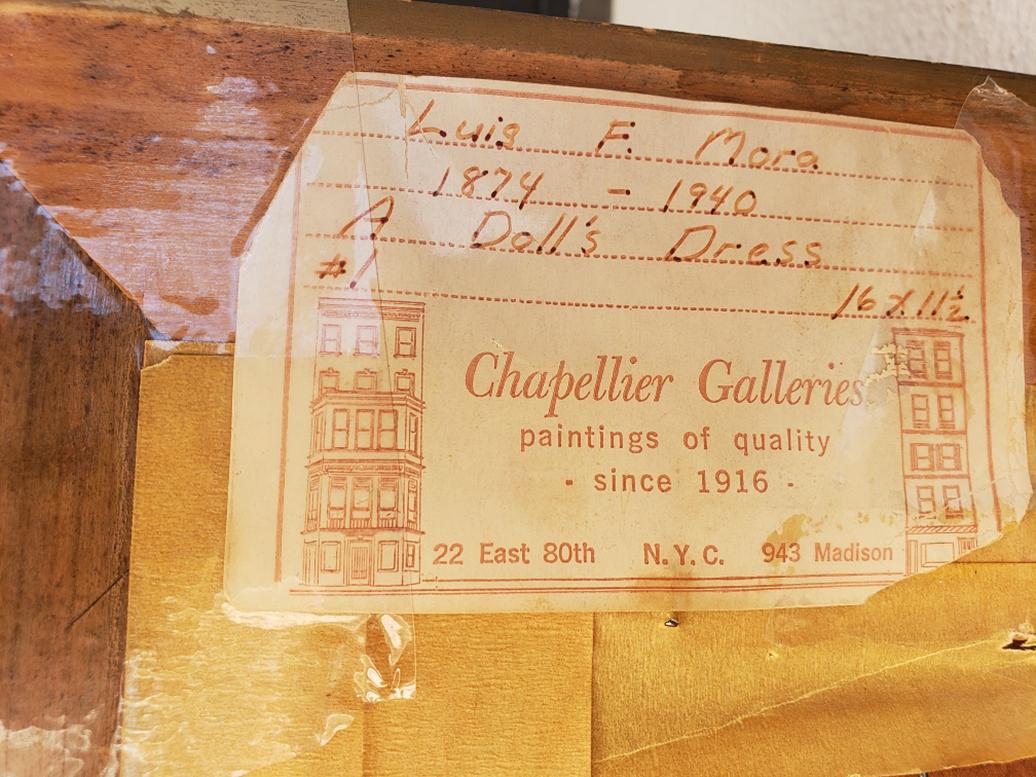 Luis F. Mora
1874 - 1940
A Doll's Dress
#1
16 x 11½
Chapellier Galleries
paintings of quality
- since 1916 -
22 East 80th N.Y.C. 943 Madison